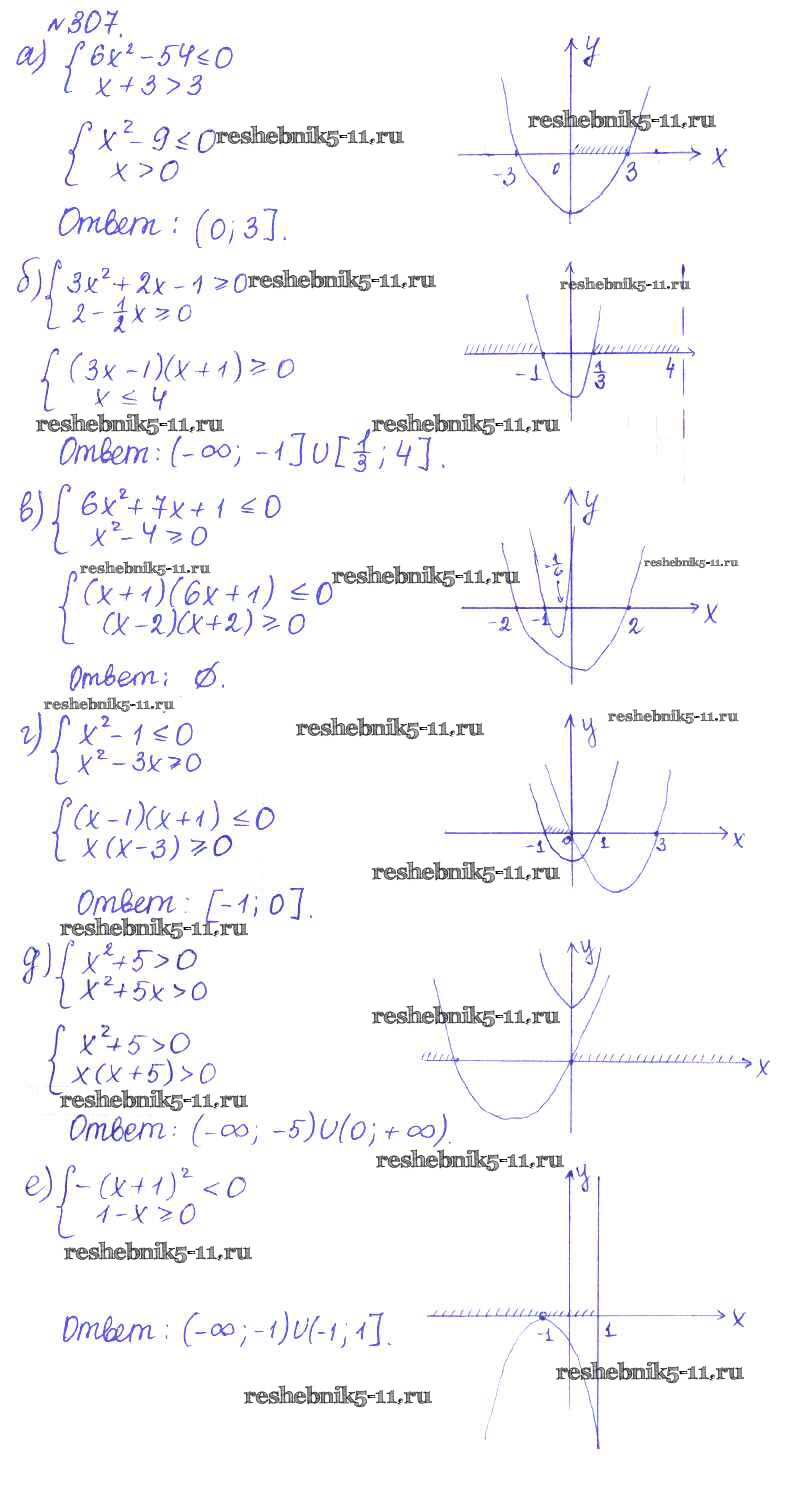 №307.
а) { 6x² − 54 ≤ 0
x + 3 > 3
y
reshebnik5-11.ru
{ x² − 9 ≤ 0 reshebnik5-11.ru
x > 0
-3 0 3 x
Ответ: (0; 3].
б) { 3x² + 2x − 1 ≥ 0 reshebnik5-11.ru
2 − 1/2 x ≥ 0
reshebnik5-11.ru
{ (3x − 1)(x + 1) ≥ 0
x ≤ 4
-1 1/3 4
reshebnik5-11.ru reshebnik5-11.ru
Ответ: (-∞; -1] ∪ [1/3; 4].
в) { 6x² + 7x + 1 ≤ 0
x² − 4 ≥ 0
y
reshebnik5-11.ru reshebnik5-11.ru reshebnik5-11.ru
{ (x + 1)(6x + 1) ≤ 0
(x − 2)(x + 2) ≥ 0
-1/6
-2 -1 2 x
Ответ: ∅.
reshebnik5-11.ru
г) { x² − 1 ≤ 0
x² − 3x ≥ 0
reshebnik5-11.ru reshebnik5-11.ru
y
{ (x − 1)(x + 1) ≤ 0
x(x − 3) ≥ 0
-1 0 1 3 x
reshebnik5-11.ru
Ответ: [-1; 0].
reshebnik5-11.ru
д) { x² + 5 > 0
x² + 5x > 0
y
reshebnik5-11.ru
{ x² + 5 > 0
x(x + 5) > 0
x
reshebnik5-11.ru
Ответ: (-∞; -5) ∪ (0; +∞).
reshebnik5-11.ru
е) { −(x + 1)² < 0
1 − x ≥ 0
y
reshebnik5-11.ru
Ответ: (-∞; -1) ∪ (-1; 1].
-1 1 x
reshebnik5-11.ru
reshebnik5-11.ru